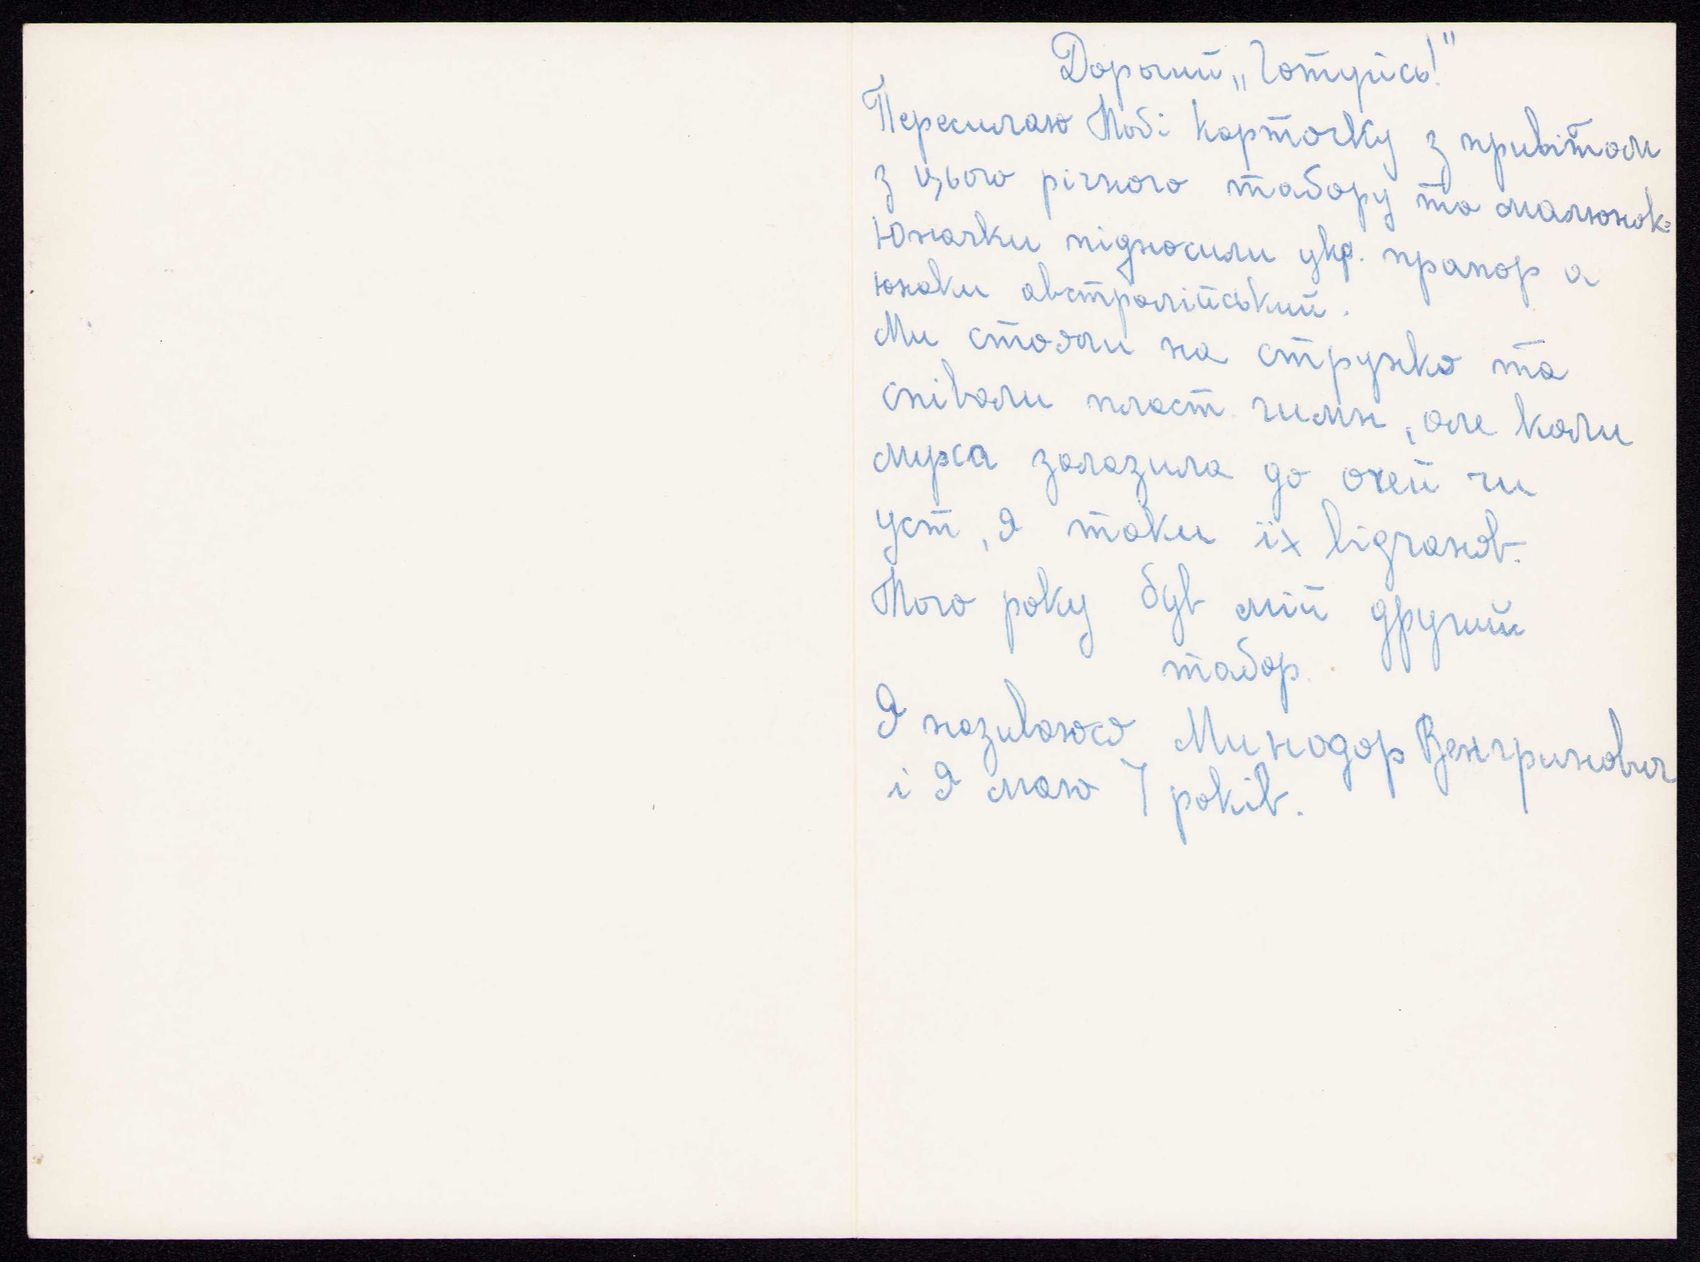 Дорогий „Готуйсь!"
Пересилаю Тобі карточку з привітом
з цього річного табору та малюнок-
Юначки підносили укр. прапор а
юнаки австралійський.
Ми стояли на струнко та
співали пласт. гимн, але коли
муха залазила до очей чи
уст, я таки їх відганяв.
Того року був мій другий
табор.
Я називаюся Минодор Венгринович
і я маю 7 років.